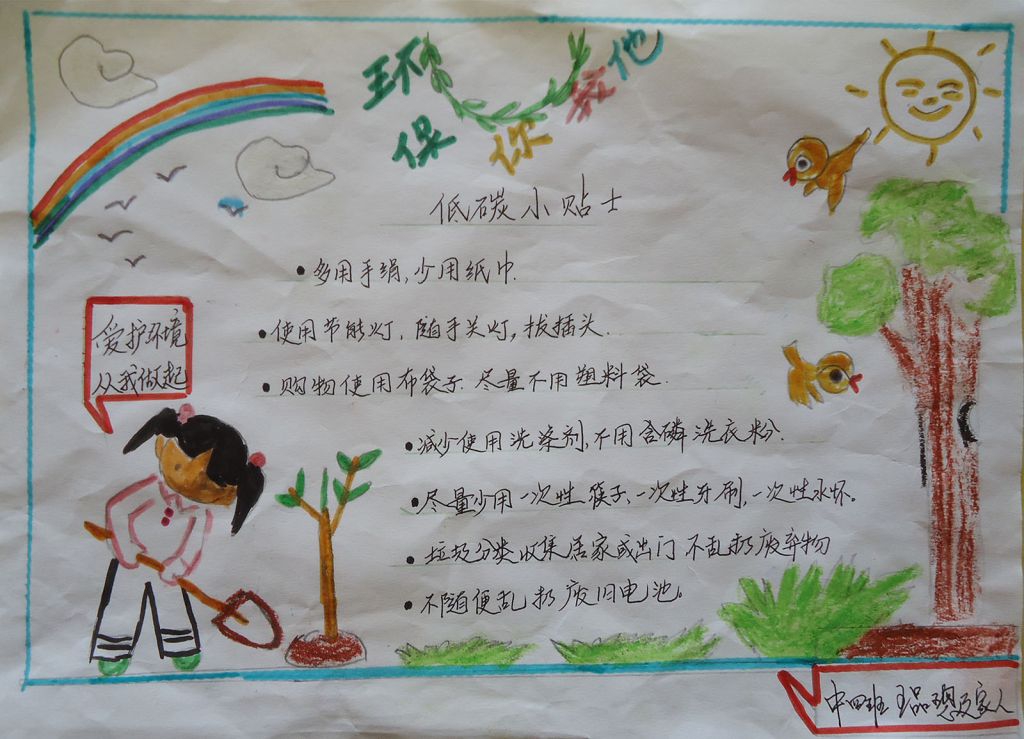 环保 你 我 他
低碳小贴士
多用手绢,少用纸巾.
使用节能灯,随手关灯,拔插头.
购物使用布袋子 尽量不用塑料袋.
爱护环境
从我做起
减少使用洗涤剂,不用含磷洗衣粉.
尽量少用一次性筷子,一次性牙刷,一次性水杯。
垃圾分类收集居家或出门 不乱扔废弃物
不随便乱扔废旧电池。
中四班 王品 及家人